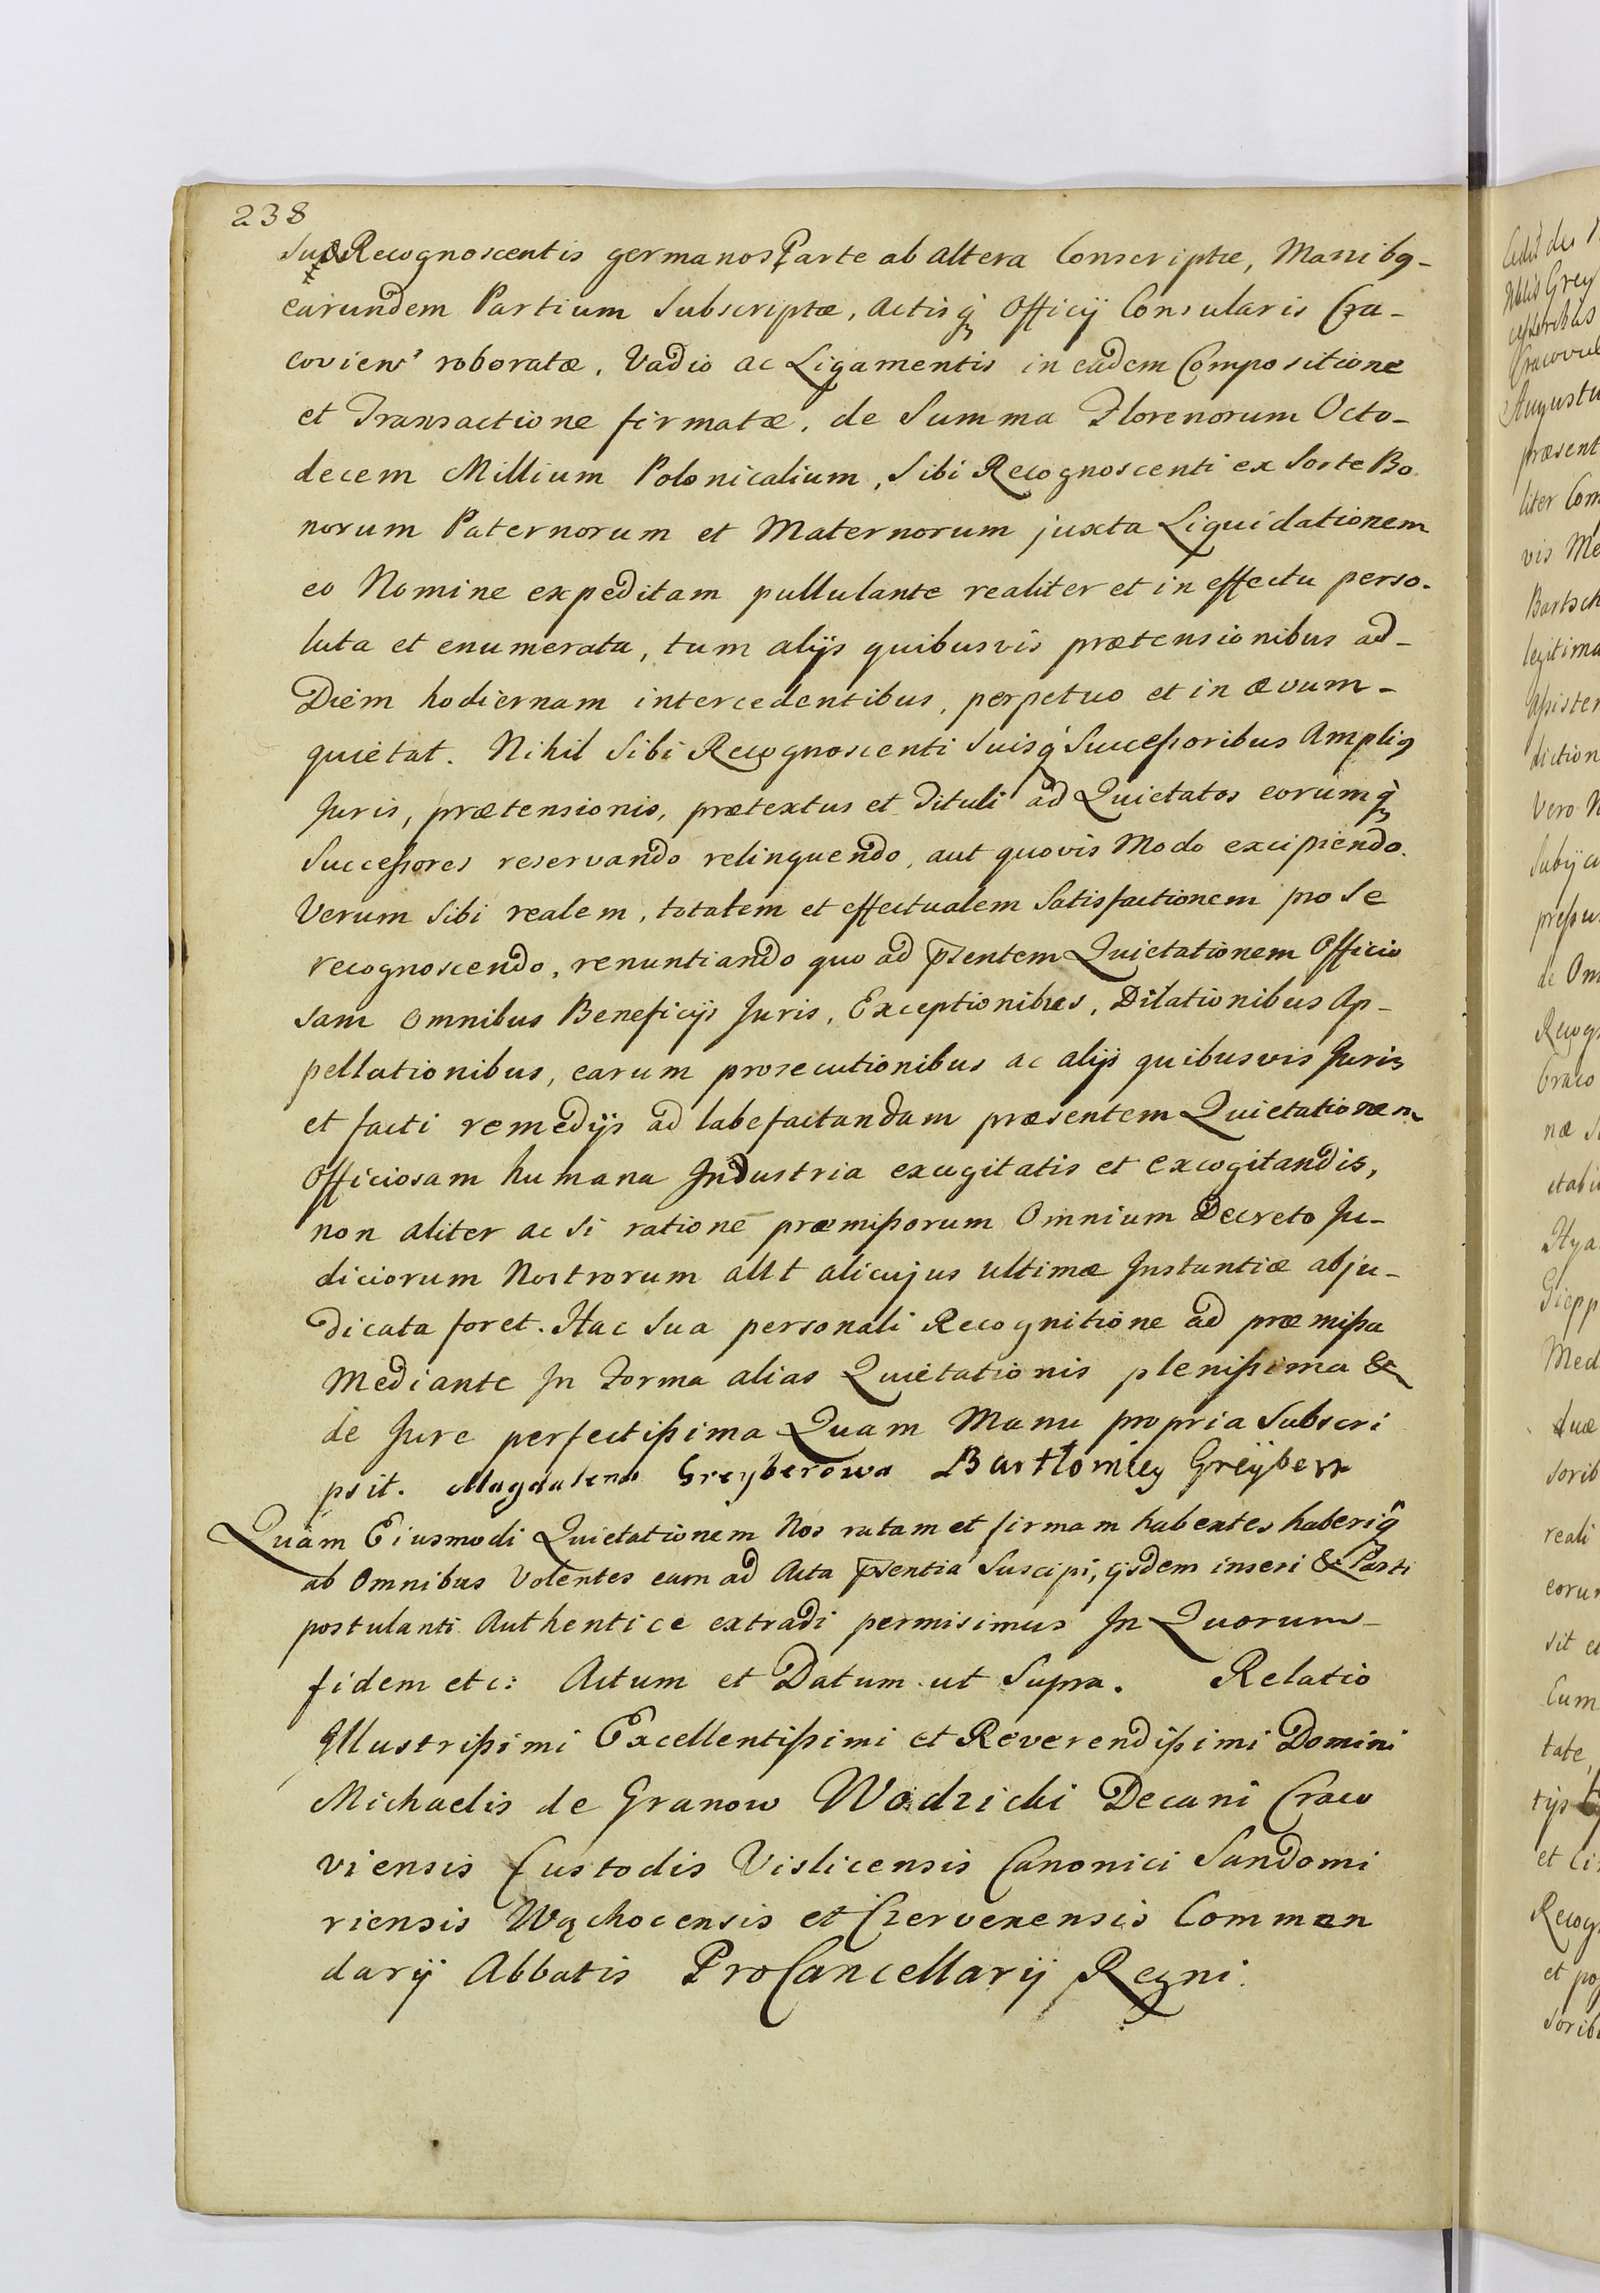 238
Suæ Recognoscentis germanos Parte ab altera Conscriptæ, Manibq-
earundem Partium Subscriptæ, Actisq́ Officij Consularis Cra-
coviens' roboratæ, Vadio ac Ligamentis in eadem Compositione
et Transactione firmatæ, de Summa Florenorum Octo-
decem Millium Polonicalium, Sibi Recognoscenti ex Sorte Bo
norum Paternorum et Maternorum juxta Liquidationem
eo Nomine expeditam pullulante realiter et in effectu perso-
luta et enumerata, tum alijs quibusvis prætensionibus ad-
Diem hodiernam intercedentibus, perpetuo et in ævum-
quietat. Nihil Sibi Recognoscenti Suisq́ Succeßoribus Ampliq
Juris, prætensionis, prætextus et Tituli ad Quietatos eorumq́
Succeßores reservando relinquendo, aut quovis Modo excipiendo.
Verum Sibi realem, totalem et effectualem Satisfactionem pro Se
recognoscendo, renuntiando quo ad p̄sentem Quietationem Officio
sam Omnibus Beneficijs Juris, Exceptionibus, Dilationibus Ap-
pellationibus, earum prosecutionibus ac alijs quibusvis Juris
et facti remedijs ad labefactandam præsentem Quietationem
Officiosam humana Industria excogitatis et excogitandis,
non aliter ac Si ratione præmißorum Omnium Decreto Ju-
diciorum Nostrorum aut alicujus Ultimæ Instantiæ abju-
dicata foret. Hac Sua personali Recognitione ad præmißa
Mediante In Forma alias Quietationis plenißima &
de Jure perfectißima Quam Manu propria Subscri
psit. Magdalena Greyberowa Bartłomiey Greÿber
Quam Eiusmodi Quietationem Nos ratam et firmam habentes haberiq́
ab Omnibus Volentes eam ad Acta p̄sentia Suscipi, ijsdem inseri & Parti
postulanti Authentice extradi permisimus In Quorum-
fidem etc: Actum et Datum ut Supra. Relatio
Illustrißimi Excellentißimi et Reverendißimi Domini
Michaelis de Granow Wodzicki Decani Craco
viensis Custodis Vislicensis Canonici Sandomi
riensis Wąchocensis et Czervenensis Commen
darij Abbatis ProCancellarij Regni.
Nblis Grey
Augustu
præsent
liter Com
vis Me
Bartsch
legitima
diction
Vero N
de Om
Recog
Craco
næ S
Med
Suæ
sorib
reali
eorum
sit e
Cum
tate,
tijs
et li
Recog
et po
sorib